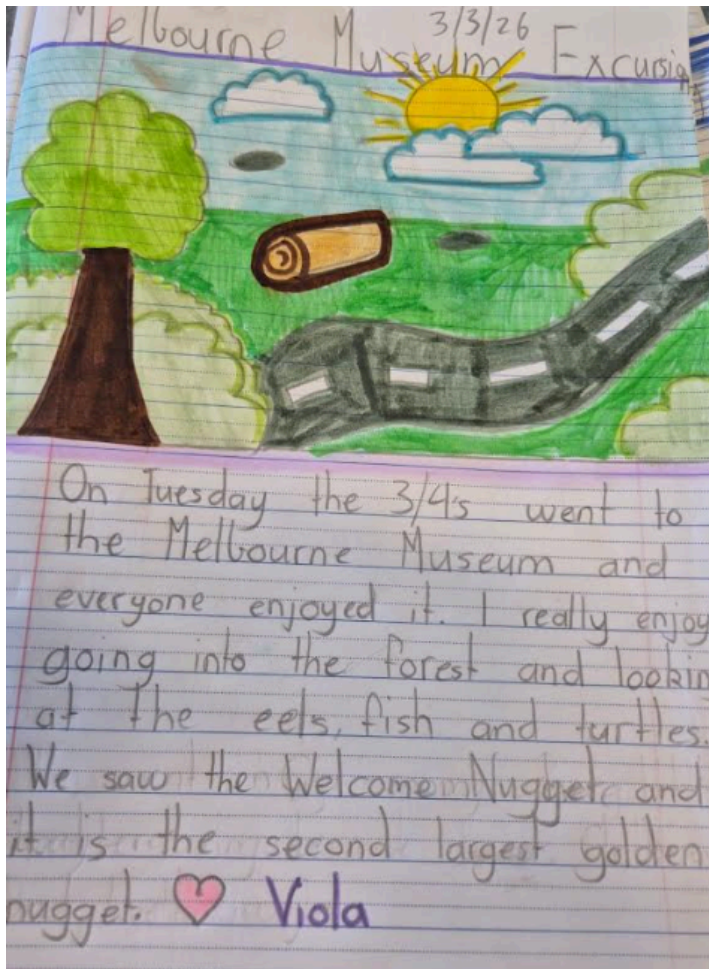 3/3/26
Melbourne Museum Excursion
On Tuesday the 3/4's went to
the Melbourne Museum and
everyone enjoyed it. I really enjoy
going into the forest and lookin
at the eels, fish and turtles.
We saw the Welcome Nugget and
it is the second largest golden
nugget. Viola